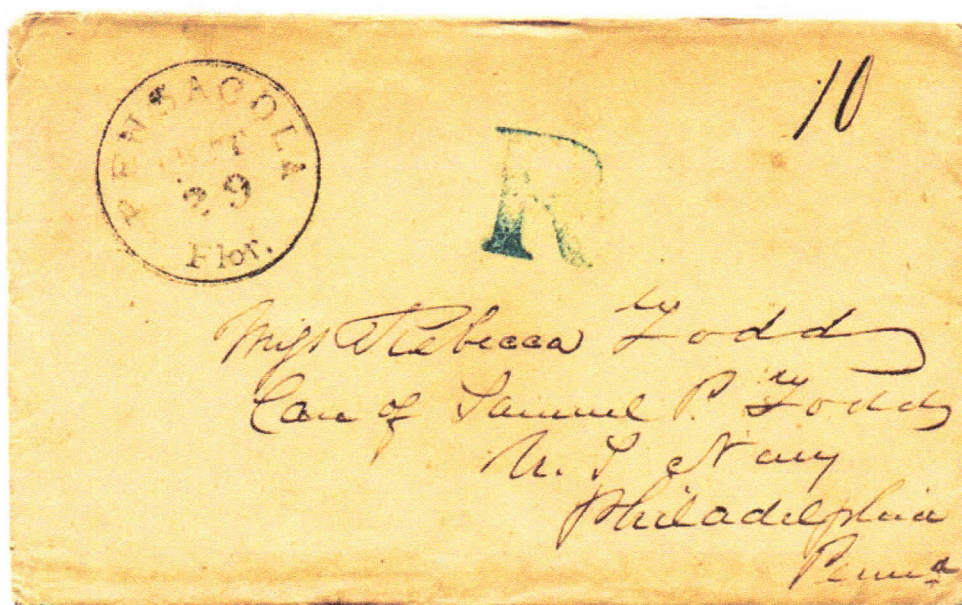 PENSACOLA
OCT
29
Flor.
10
R
Miss Rebecca Todd
Care of Samuel P. Todd
U. S Navy
Philadelphia
Penna